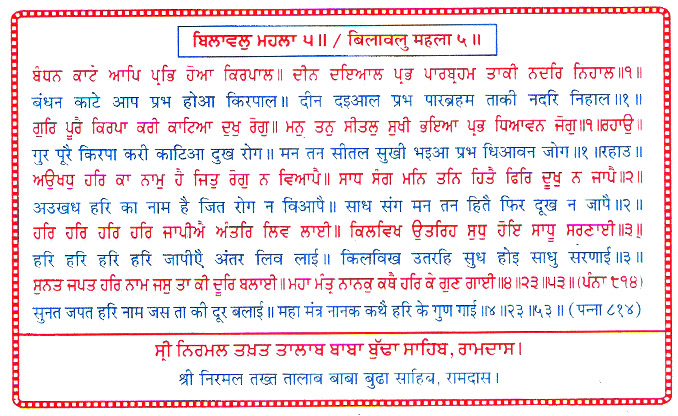 ਬਿਲਾਵਲੁ ਮਹਲਾ ੫॥ / बिलावलु महला ५॥
ਬੰਧਨ ਕਾਟੇ ਆਪਿ ਪ੍ਰਭਿ ਹੋਆ ਕਿਰਪਾਲ॥ ਦੀਨ ਦਇਆਲ ਪ੍ਰਭ ਪਾਰਬ੍ਰਹਮ ਤਾਕੀ ਨਦਰਿ ਨਿਹਾਲ॥੧॥
बंधन काटे आप प्रभ होआ किरपाल॥ दीन दइआल प्रभ पारब्रहम ताकी नदरि निहाल॥१॥
ਗੁਰਿ ਪੂਰੈ ਕਿਰਪਾ ਕਰੀ ਕਾਟਿਆ ਦੁਖੁ ਰੋਗੁ॥ ਮਨੁ ਤਨੁ ਸੀਤਲੁ ਸੁਖੀ ਭਇਆ ਪ੍ਰਭ ਧਿਆਵਨ ਜੋਗੁ॥੧॥ਰਹਾਉ॥
गुर पूरै किरपा करी काटिआ दुख रोग॥ मन तन सीतल सुखी भइआ प्रभ धिआवन जोग॥१॥रहाउ॥
ਅਉਖਧੁ ਹਰਿ ਕਾ ਨਾਮੁ ਹੈ ਜਿਤੁ ਰੋਗੁ ਨ ਵਿਆਪੈ॥ ਸਾਧ ਸੰਗ ਮਨਿ ਤਨਿ ਹਿਤੈ ਫਿਰਿ ਦੂਖੁ ਨ ਜਾਪੈ॥੨॥
अउखध हरि का नाम है जित रोग न विआपै॥ साध संग मन तन हितै फिर दूख न जापै॥२॥
ਹਰਿ ਹਰਿ ਹਰਿ ਹਰਿ ਜਾਪੀਐ ਅੰਤਰਿ ਲਿਵ ਲਾਈ॥ ਕਿਲਵਿਖ ਉਤਰਹਿ ਸੁਧੁ ਹੋਇ ਸਾਧੂ ਸਰਣਾਈ॥੩॥
हरि हरि हरि हरि जापीऐ अंतर लिव लाई॥ किलविख उतरहि सुध होइ साधु सरणाई॥३॥
ਸੁਨਤ ਜਪਤ ਹਰਿ ਨਾਮ ਜਸੁ ਤਾ ਕੀ ਦੂਰਿ ਬਲਾਈ॥ ਮਹਾ ਮੰਤ੍ਰ ਨਾਨਕੁ ਕਥੈ ਹਰਿ ਕੇ ਗੁਣ ਗਾਈ॥੪॥੨੩॥੫੩॥ (ਪੰਨਾ ੮੧੪)
सुनत जपत हरि नाम जस ता की दूर बलाई॥ महा मंत्र नानक कथै हरि के गुण गाई॥४॥२३॥५३॥ (पन्ना ८१४)
ਸ੍ਰੀ ਨਿਰਮਲ ਤਖ਼ਤ ਤਾਲਾਬ ਬਾਬਾ ਬੁੱਢਾ ਸਾਹਿਬ, ਰਾਮਦਾਸ।
श्री निरमल तख्त तालाब बाबा बुढा साहिब, रामदास।